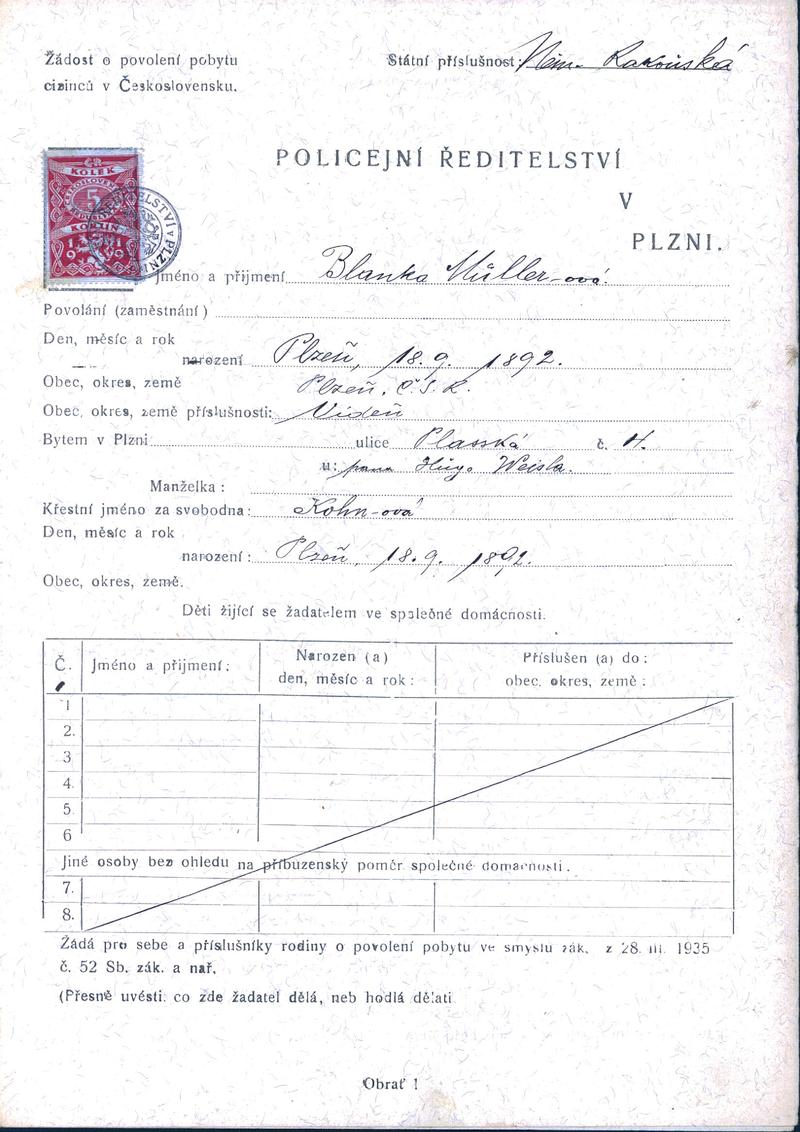 Žádost o povolení pobytu
cizinců v Československu.
Státní příslušnost: Něm. Rakouská
POLICEJNÍ ŘEDITELSTVÍ
V
PLZNI.
ČR
KOLEK
5
KORUN
Jméno a přijmení Blanka Müller-ová.
Povolání (zaměstnání)
Den, měsíc a rok
narození Plzeň, 18. 9. 1892.
Obec, okres, země Plzeň, Č.S.R.
Obec, okres, země příslušnosti: Videň
Bytem v Plzni ulice Plasská č. 4.
u: pana Hugo Weisla.
Manželka:
Křestní jméno za svobodna: Kohn-ová
Den, měsíc a rok
narození: Plzeň, 18. 9. 1892.
Obec, okres, země.
Děti žijící se žadatelem ve společné domácnosti.
Č. Jméno a přijmení: Narozen (a) den, měsíc a rok: Příslušen (a) do: obec, okres, země:
1
2.
3
4.
5.
6
Jiné osoby bez ohledu na příbuzenský poměr společné domácnosti.
7.
8.
Žádá pro sebe a příslušníky rodiny o povolení pobytu ve smyslu zák. z 28. III. 1935
č. 52 Sb. zák. a nař.
(Přesně uvésti: co zde žadatel dělá, neb hodlá dělati
Obrať !